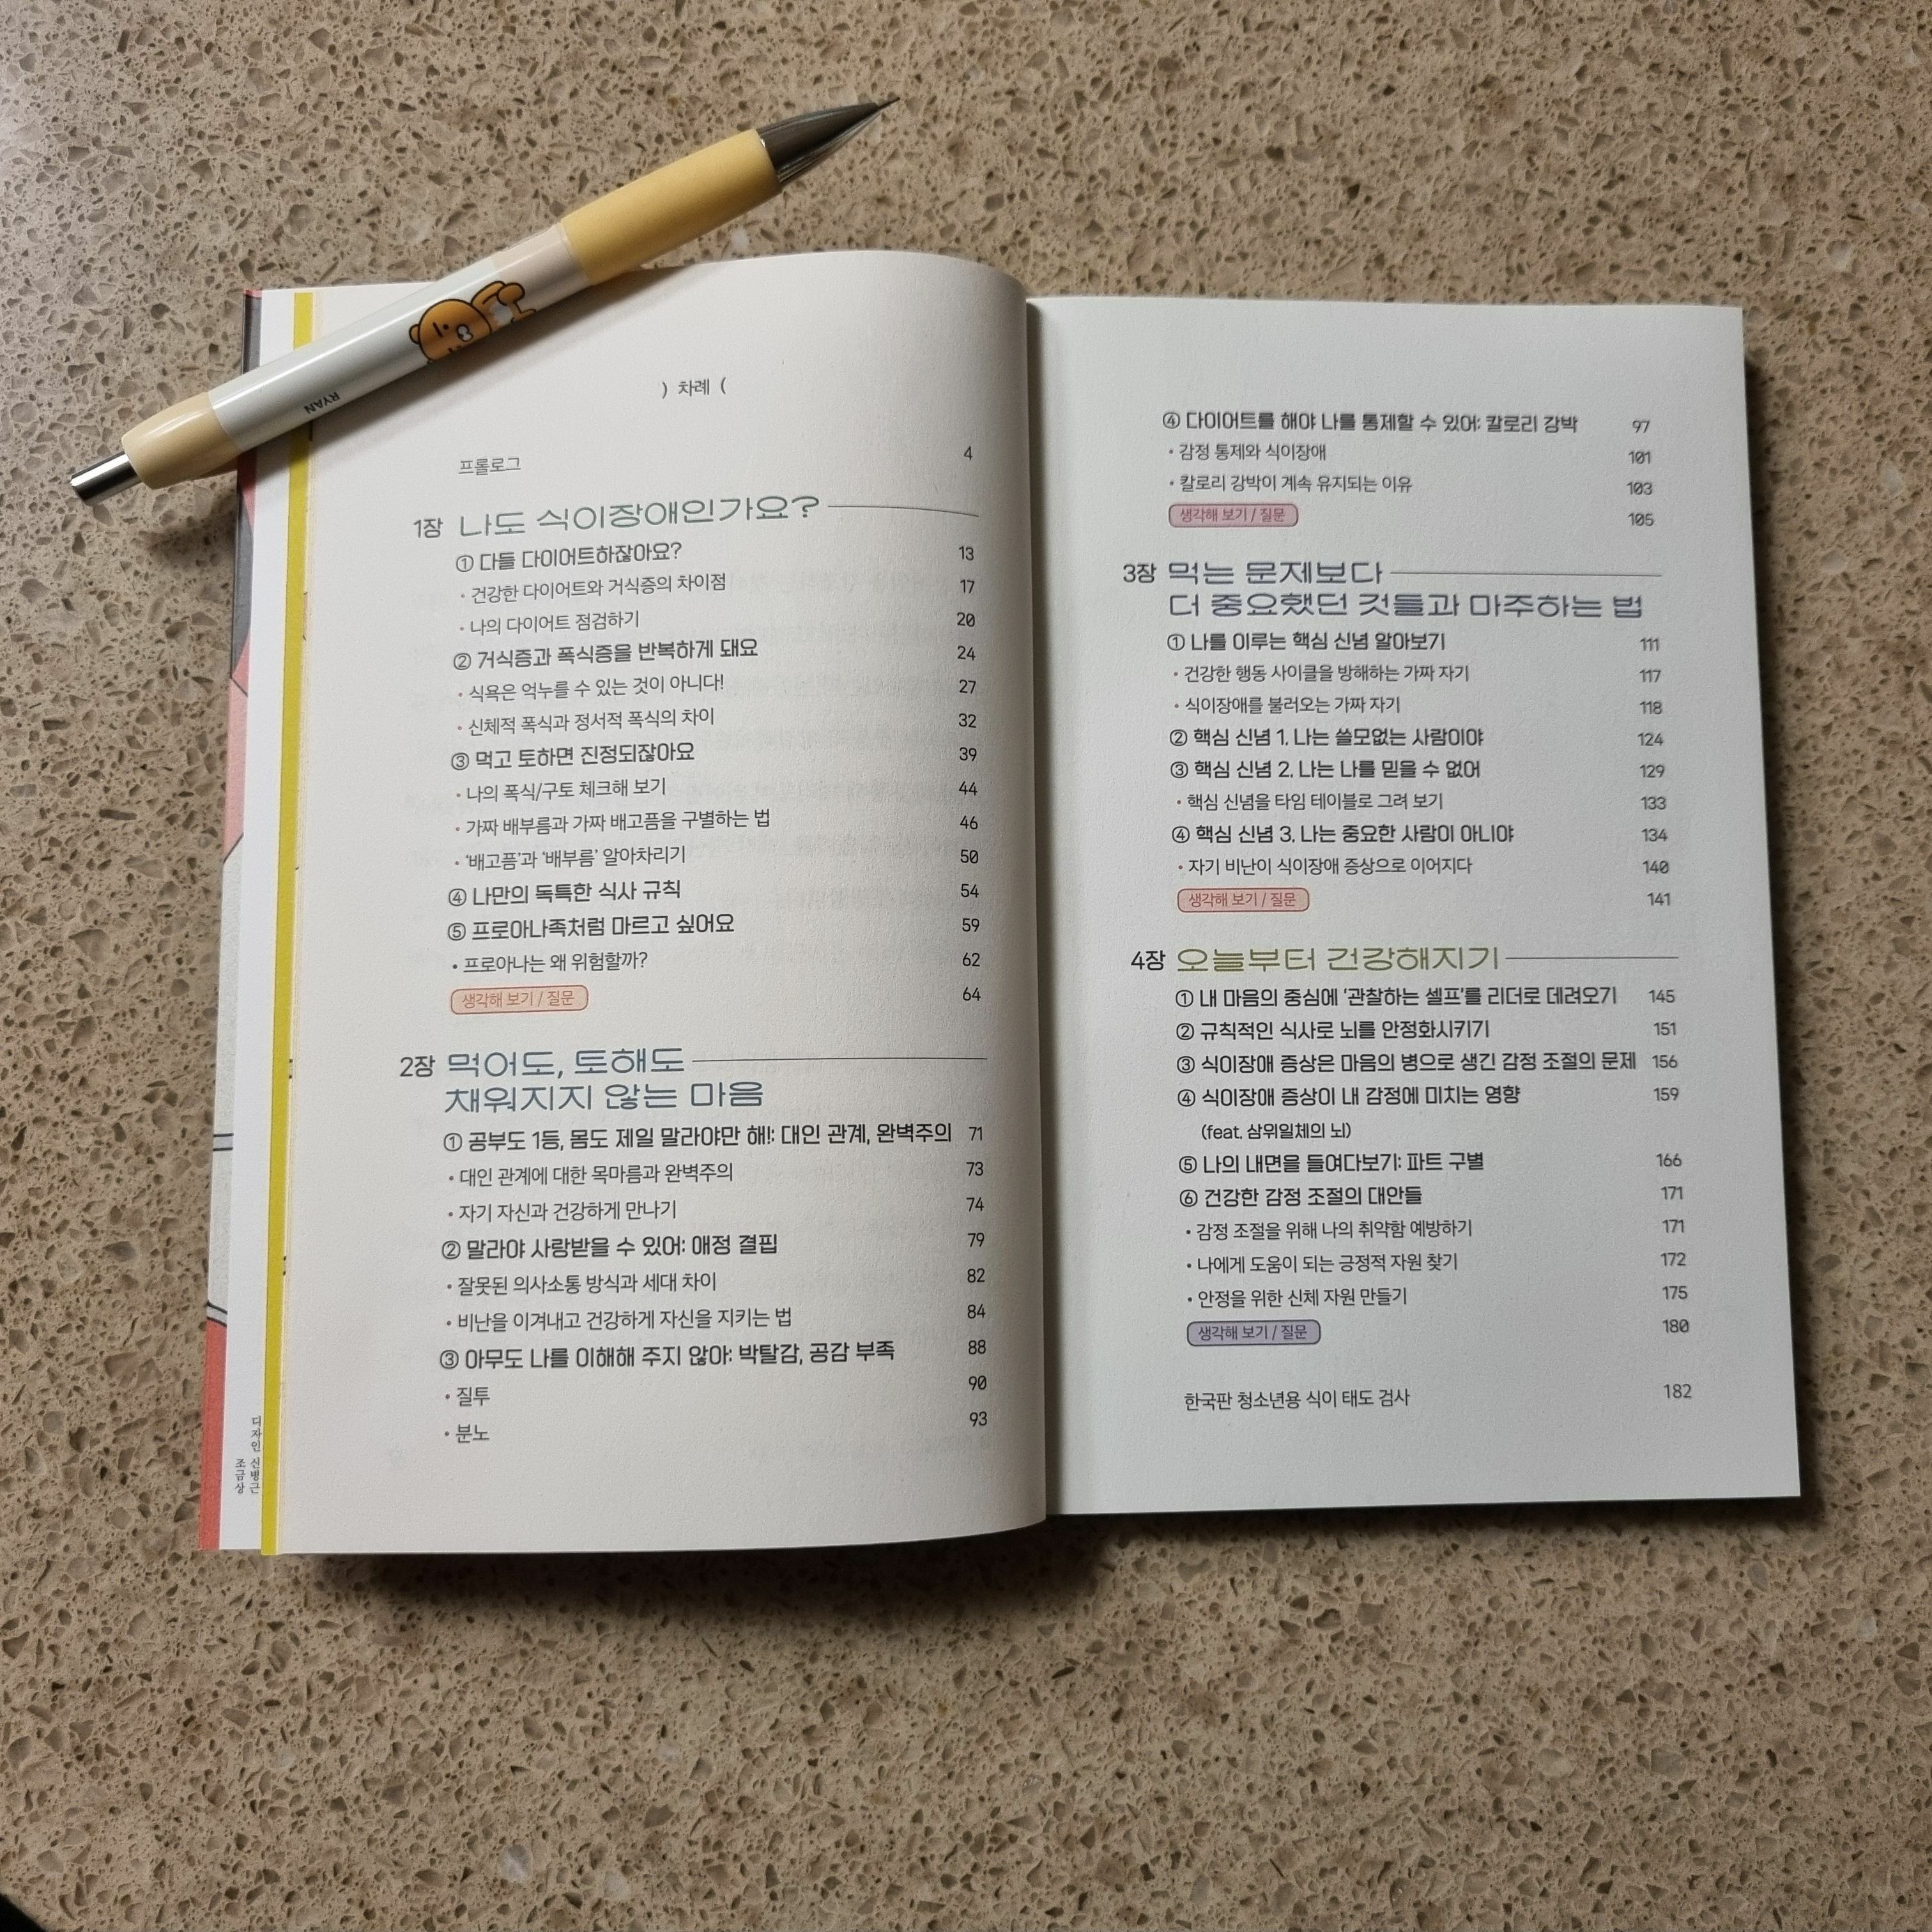 RYAN
) 차례 (
프롤로그 4
1장 나도 식이장애인가요?
① 다들 다이어트하잖아요? 13
• 건강한 다이어트와 거식증의 차이점 17
• 나의 다이어트 점검하기 20
② 거식증과 폭식증을 반복하게 돼요 24
• 식욕은 억누를 수 있는 것이 아니다! 27
• 신체적 폭식과 정서적 폭식의 차이 32
③ 먹고 토하면 진정되잖아요 39
• 나의 폭식/구토 체크해 보기 44
• 가짜 배부름과 가짜 배고픔을 구별하는 법 46
• '배고픔'과 '배부름' 알아차리기 50
④ 나만의 독특한 식사 규칙 54
⑤ 프로아나족처럼 마르고 싶어요 59
• 프로아나는 왜 위험할까? 62
생각해 보기 / 질문 64
2장 먹어도, 토해도
채워지지 않는 마음
① 공부도 1등, 몸도 제일 말라야만 해!: 대인 관계, 완벽주의 71
• 대인 관계에 대한 목마름과 완벽주의 73
• 자기 자신과 건강하게 만나기 74
② 말라야 사랑받을 수 있어: 애정 결핍 79
• 잘못된 의사소통 방식과 세대 차이 82
• 비난을 이겨내고 건강하게 자신을 지키는 법 84
③ 아무도 나를 이해해 주지 않아: 박탈감, 공감 부족 88
• 질투 90
• 분노 93
디자인 신병근
조금상
④ 다이어트를 해야 나를 통제할 수 있어: 칼로리 강박 97
• 감정 통제와 식이장애 101
• 칼로리 강박이 계속 유지되는 이유 103
생각해 보기 / 질문 105
3장 먹는 문제보다
더 중요했던 것들과 마주하는 법
① 나를 이루는 핵심 신념 알아보기 111
• 건강한 행동 사이클을 방해하는 가짜 자기 117
• 식이장애를 불러오는 가짜 자기 118
② 핵심 신념 1. 나는 쓸모없는 사람이야 124
③ 핵심 신념 2. 나는 나를 믿을 수 없어 129
• 핵심 신념을 타임 테이블로 그려 보기 133
④ 핵심 신념 3. 나는 중요한 사람이 아니야 134
• 자기 비난이 식이장애 증상으로 이어지다 140
생각해 보기 / 질문 141
4장 오늘부터 건강해지기
① 내 마음의 중심에 '관찰하는 셀프'를 리더로 데려오기 145
② 규칙적인 식사로 뇌를 안정화시키기 151
③ 식이장애 증상은 마음의 병으로 생긴 감정 조절의 문제 156
④ 식이장애 증상이 내 감정에 미치는 영향 159
(feat. 삼위일체의 뇌)
⑤ 나의 내면을 들여다보기: 파트 구별 166
⑥ 건강한 감정 조절의 대안들 171
• 감정 조절을 위해 나의 취약함 예방하기 171
• 나에게 도움이 되는 긍정적 자원 찾기 172
• 안정을 위한 신체 자원 만들기 175
생각해 보기 / 질문 180
한국판 청소년용 식이 태도 검사 182